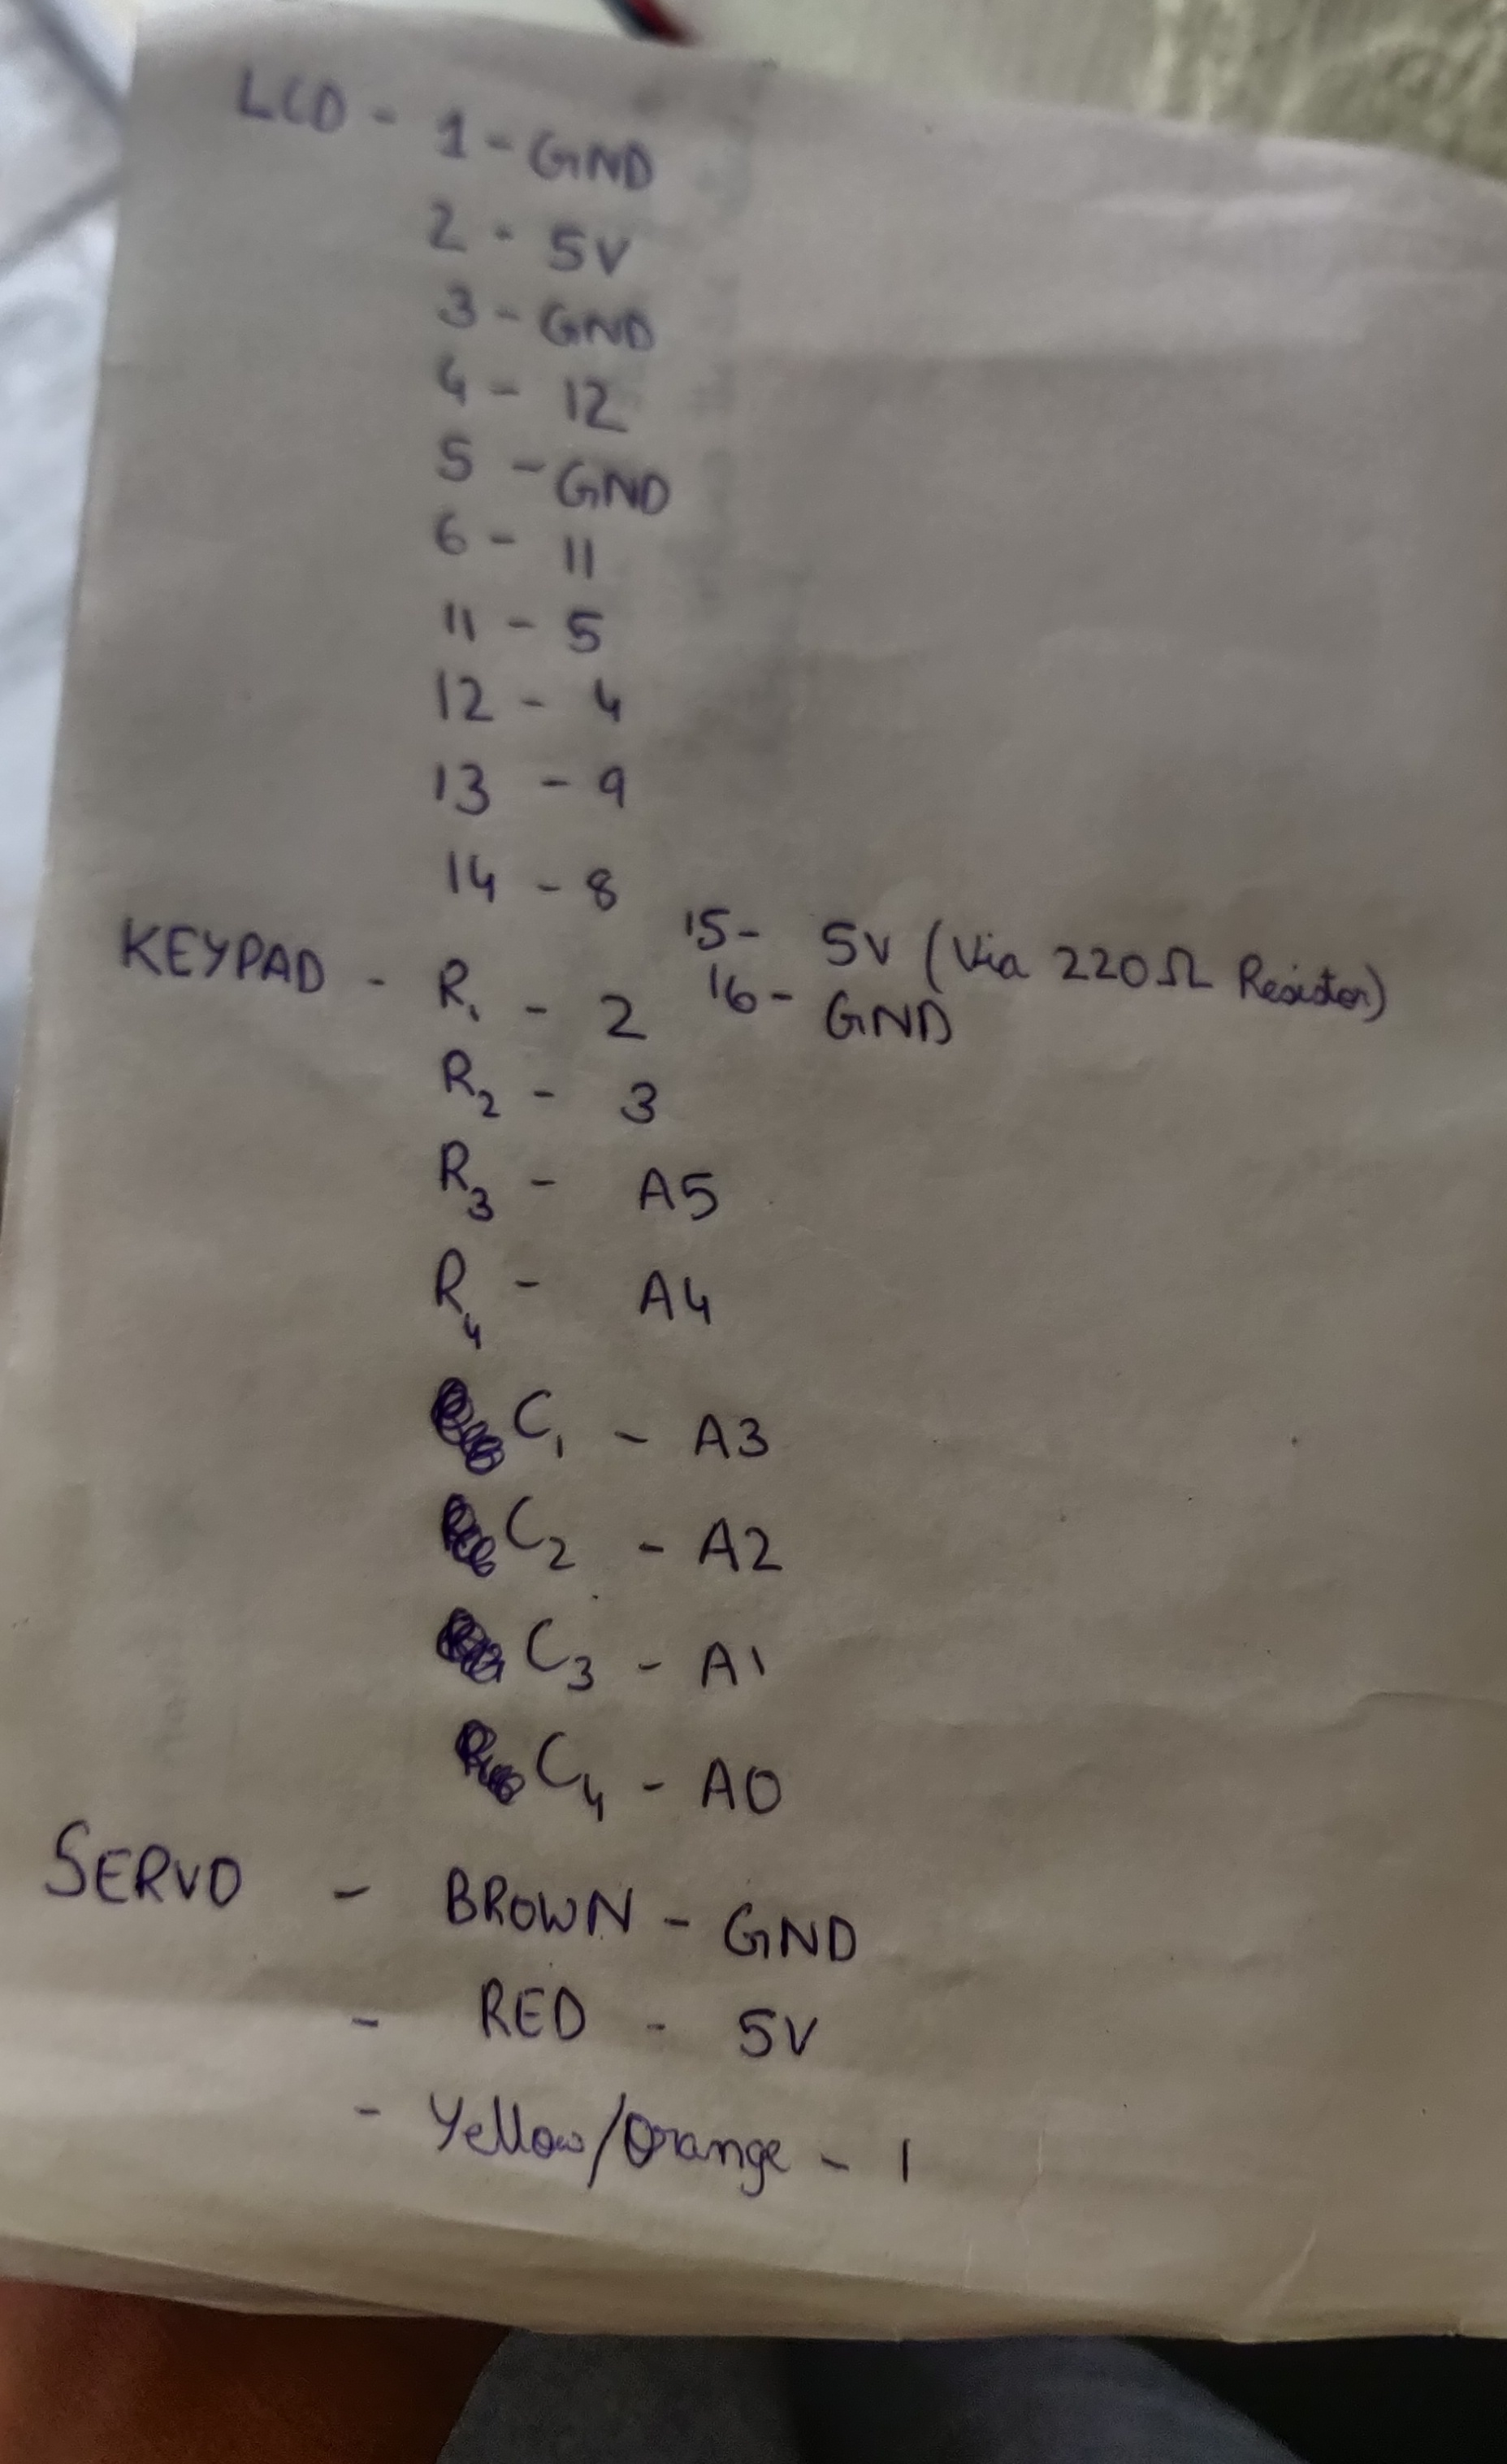 LCD - 1 - GND
2 - 5V
3 - GND
4 - 12
5 - GND
6 - 11
11 - 5
12 - 4
13 - 9
14 - 8
15 - 5V (Via 220Ω Resistor)
16 - GND
KEYPAD - R1 - 2
R2 - 3
R3 - A5
R4 - A4
C1 - A3
C2 - A2
C3 - A1
C4 - A0
SERVO - BROWN - GND
- RED - 5V
- Yellow/Orange - 1